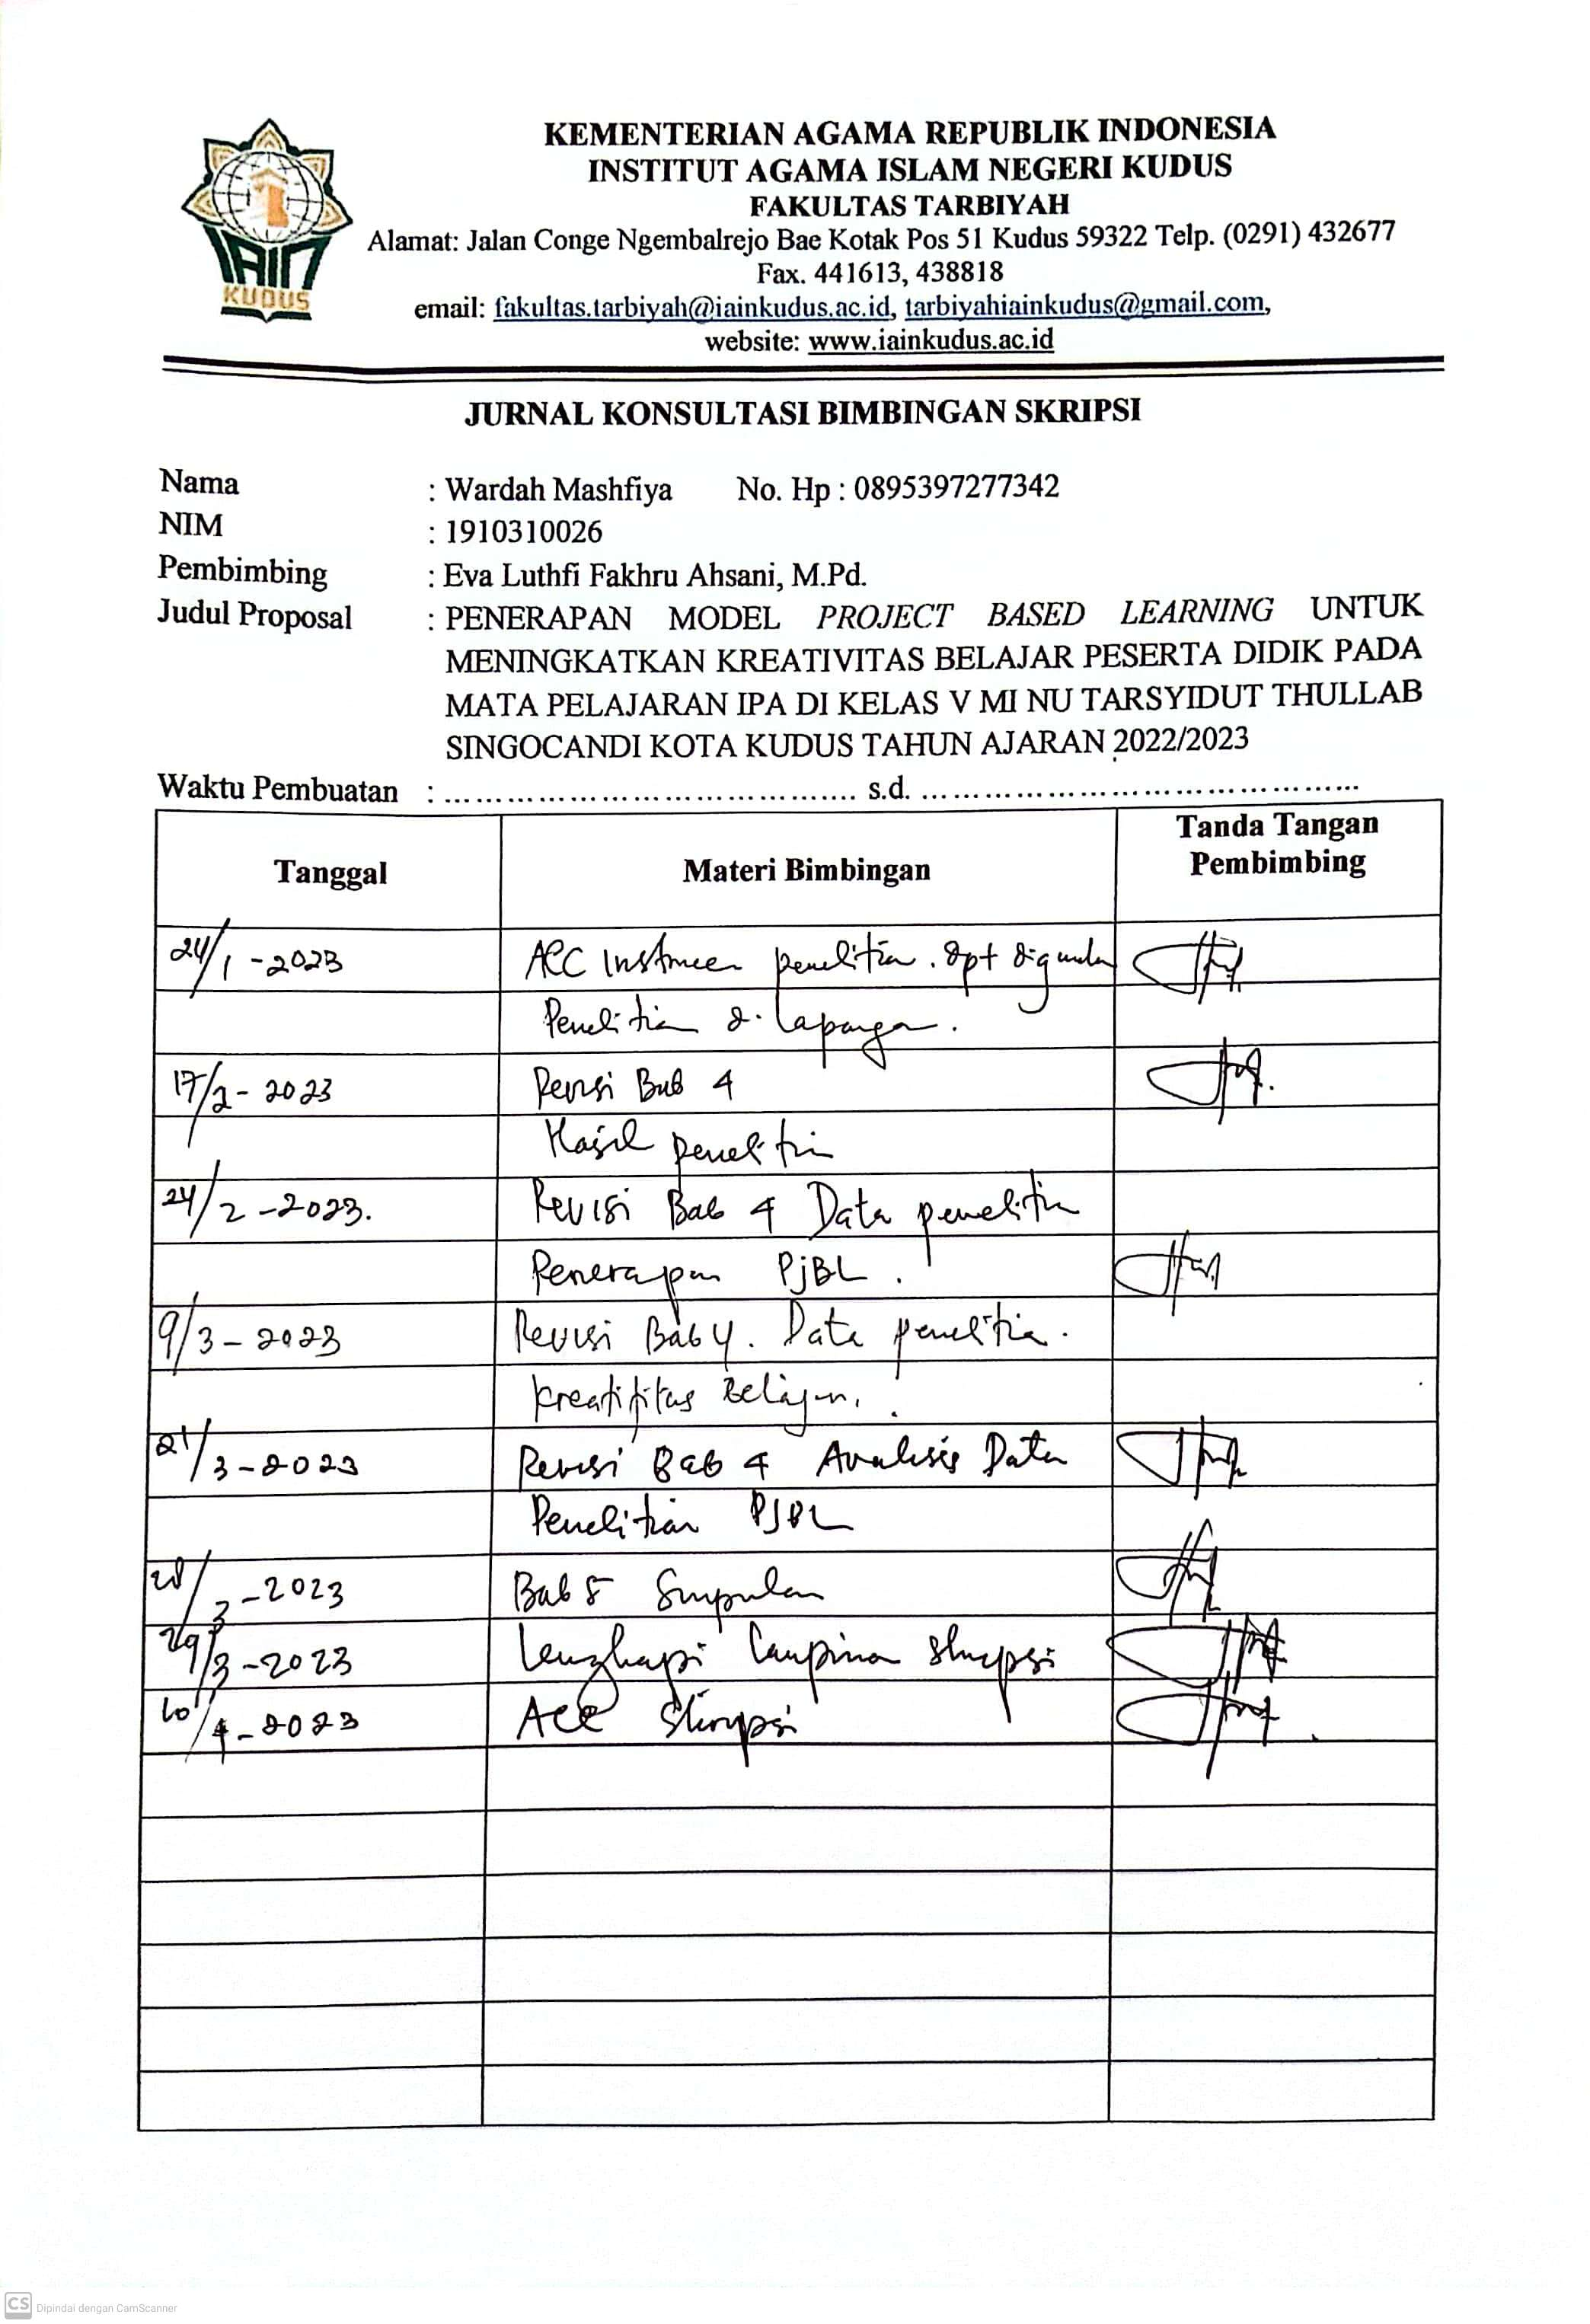 IAIN
KUDUS
KEMENTERIAN AGAMA REPUBLIK INDONESIA
INSTITUT AGAMA ISLAM NEGERI KUDUS
FAKULTAS TARBIYAH
Alamat: Jalan Conge Ngembalrejo Bae Kotak Pos 51 Kudus 59322 Telp. (0291) 432677
Fax. 441613, 438818
email: fakultas.tarbiyah@iainkudus.ac.id, tarbiyahiainkudus@gmail.com,
website: www.iainkudus.ac.id
JURNAL KONSULTASI BIMBINGAN SKRIPSI
Nama : Wardah Mashfiya No. Hp : 0895397277342
NIM : 1910310026
Pembimbing : Eva Luthfi Fakhru Ahsani, M.Pd.
Judul Proposal : PENERAPAN MODEL PROJECT BASED LEARNING UNTUK
MENINGKATKAN KREATIVITAS BELAJAR PESERTA DIDIK PADA
MATA PELAJARAN IPA DI KELAS V MI NU TARSYIDUT THULLAB
SINGOCANDI KOTA KUDUS TAHUN AJARAN 2022/2023
Waktu Pembuatan : ........................................ s.d. ..........................................
Tanggal Materi Bimbingan Tanda Tangan
Pembimbing
24/1 - 2023 ACC Instrumen penelitian. dpt
Penelitian di lapangan.
17/2 - 2023 Revisi Bab 4
Hasil penelitian
24/2 - 2023. Revisi Bab 4 Data penelitian
Penerapan PjBL.
9/3 - 2023 Revisi Bab 4. Data penelitian.
kreatifitas Belajar.
21/3 - 2023 Revisi Bab 4 Analisis Data
Penelitian PJBL
28/3 - 2023 Bab 5 Simpulan
29/3 - 2023 Lengkapi Lampiran Skripsi
10/4 - 2023 Acc Skripsi
CS Dipindai dengan CamScanner